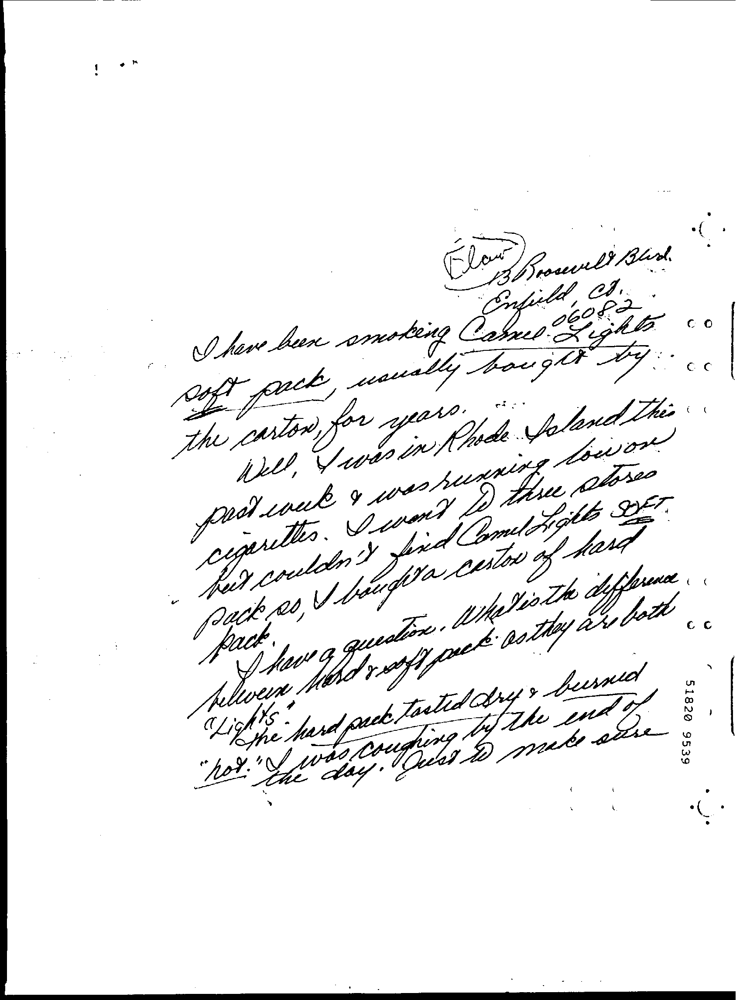 Flaw
13 Roosevelt Blvd.
Enfield, Ct.
06082
I have been smoking Camel Lights
soft pack, usually bought by
the carton, for years.
Well, I was in Rhode Island this
past week & was running low on
cigarettes. I went to three stores
but couldn't find Camel Lights SOFT
pack so, I bought a carton of hard
pack.
I have a question. What is the difference
between hard & soft pack as they are both
"Lights."
The hard pack tasted dry & burned
"hot." I was coughing by the end of
the day. Just to make sure
51820 9539